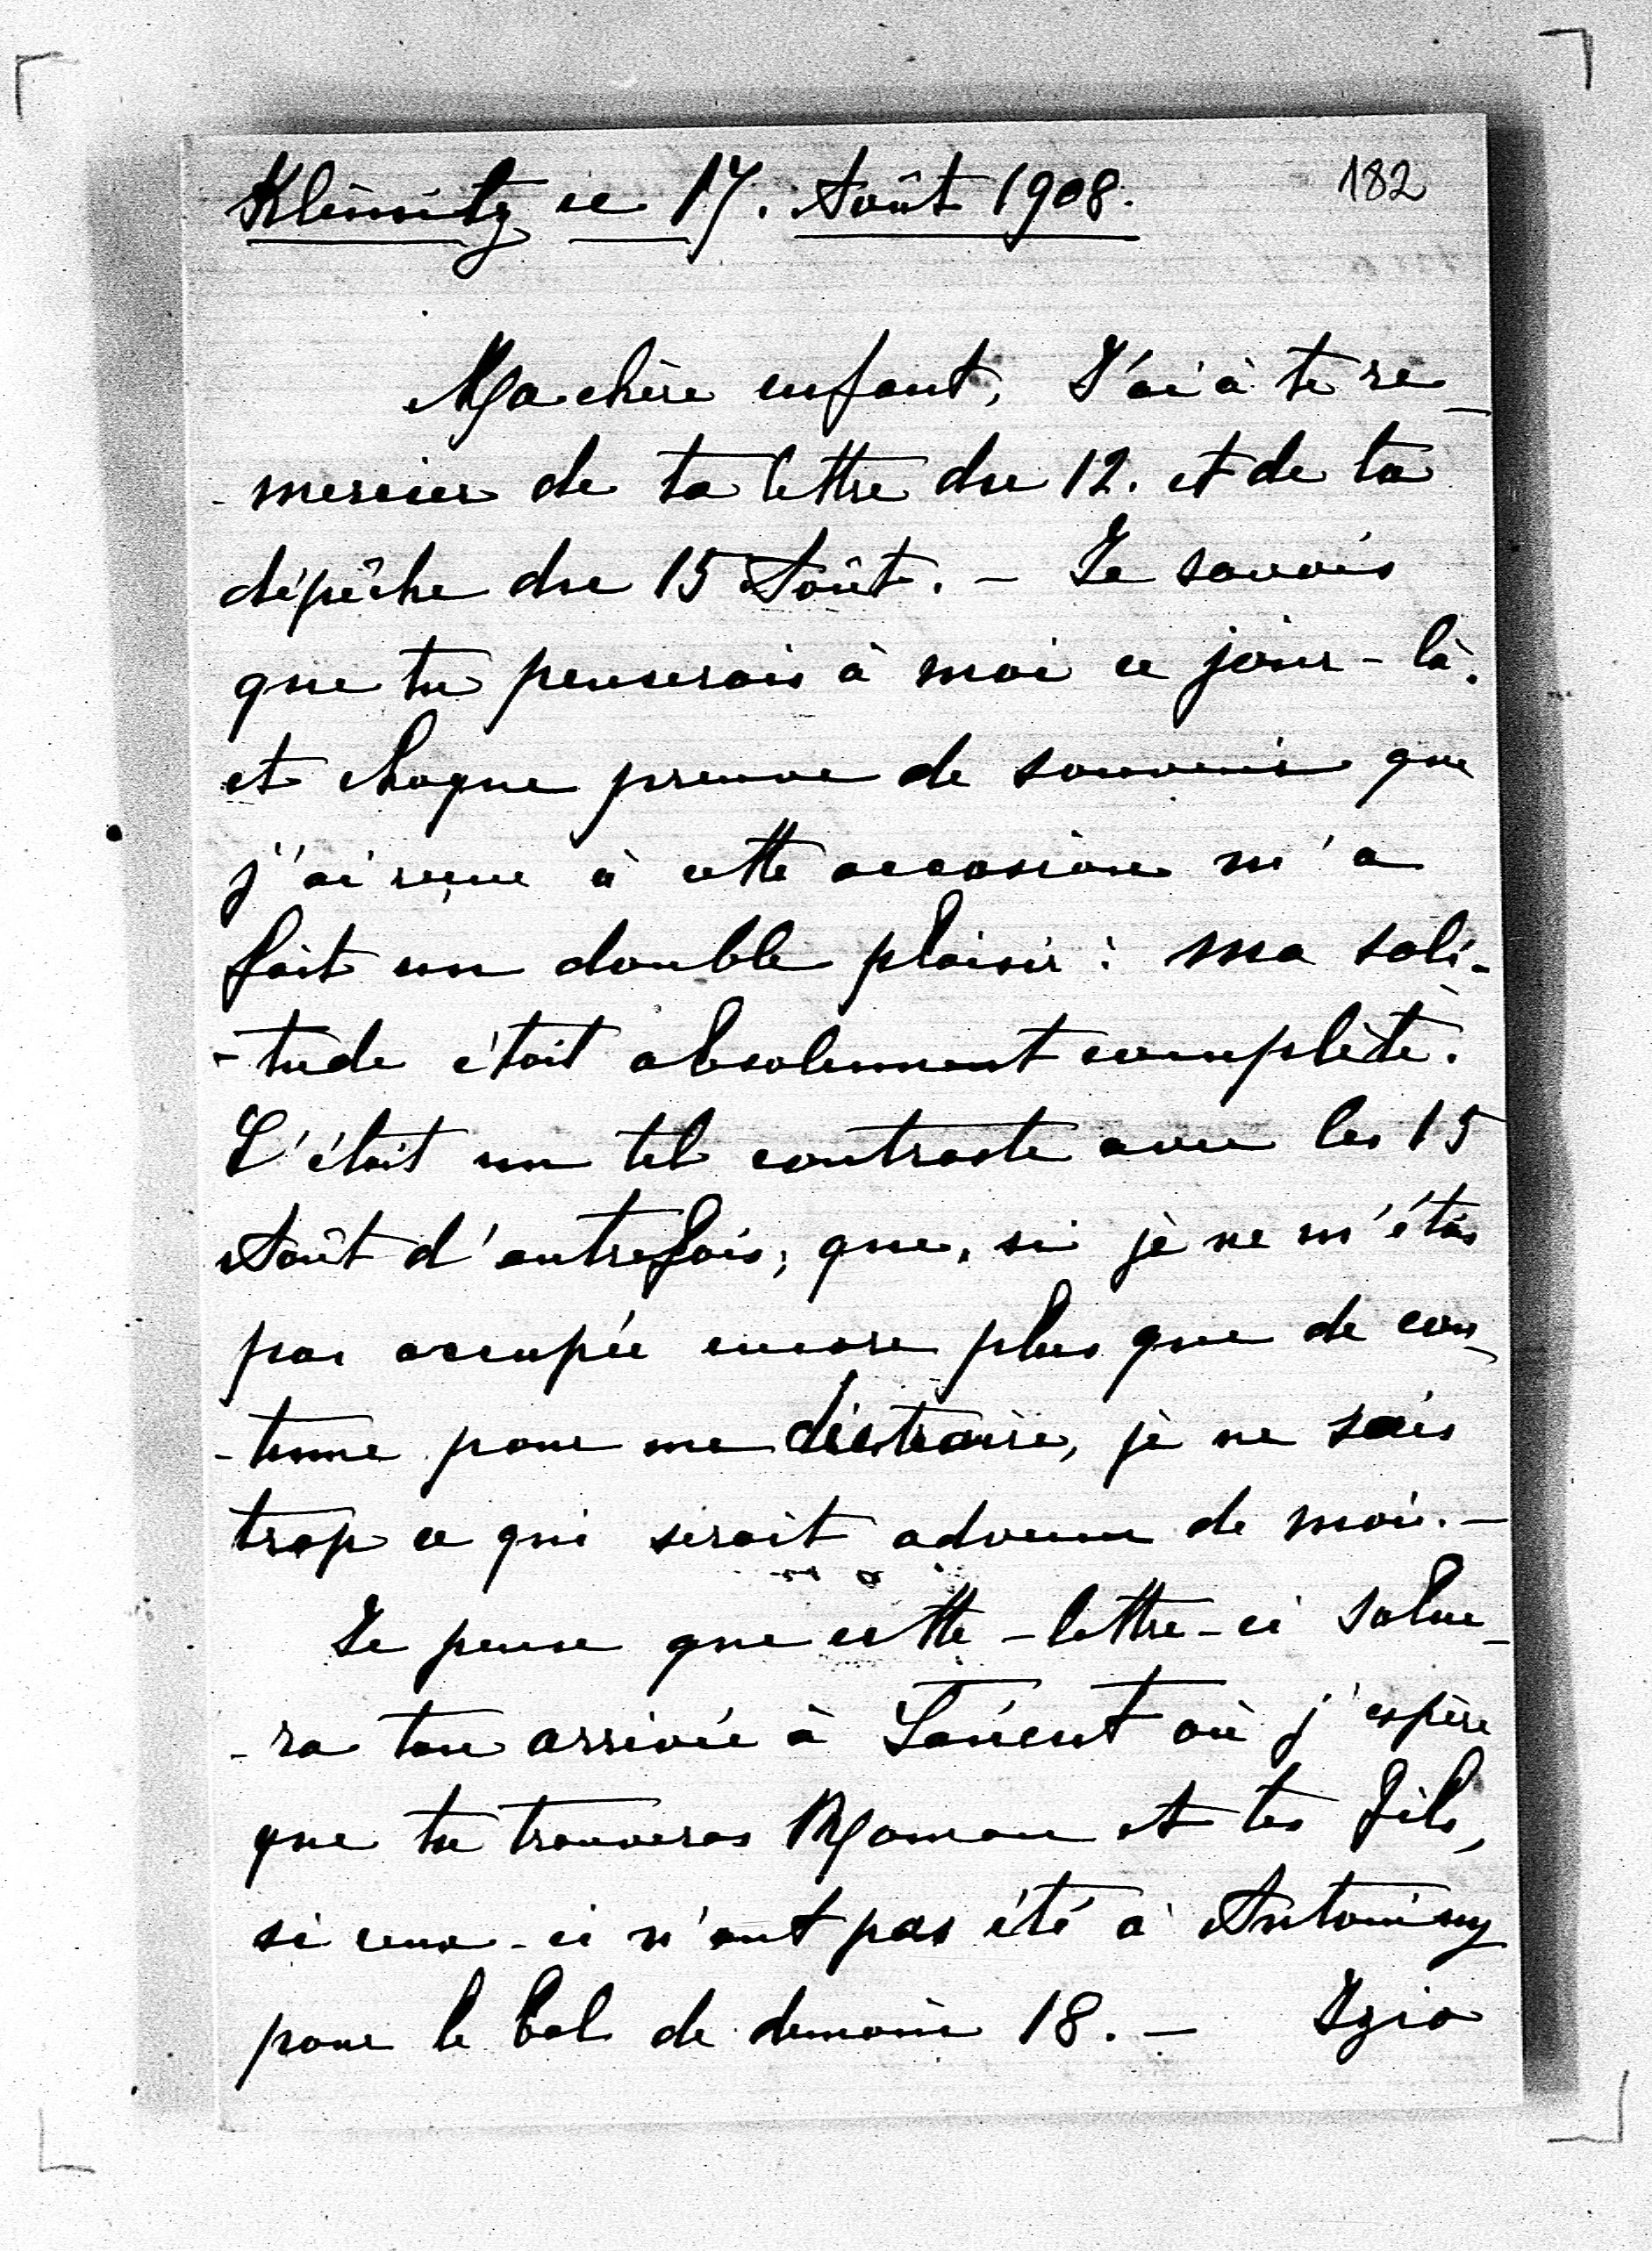 Klemnitz ce 17. Août 1908.
182
Ma chère enfant, J'ai à te re-
-mercier de ta lettre du 12. et de ta
dépêche du 15 Août. - Je savais
que tu penserais à moi ce jour-là.
et chaque preuve de souvenir que
j'ai reçue à cette occasion m'a
fait un double plaisir : ma soli-
-tude était absolument complète.
C'était un tel contraste avec les 15
Août d'autrefois, que, si je ne m'étais
pas occupée encore plus que de cou-
-tume pour me distraire, je ne sais
trop ce qui serait advenu de moi. -
Je pense que cette-lettre-ci salue-
-ra ton arrivée à où j'espère
que tu trouveras Maman et tes fils,
si ceux-ci n'ont pas été à Antoniny
pour le bal de demain 18. - Izio